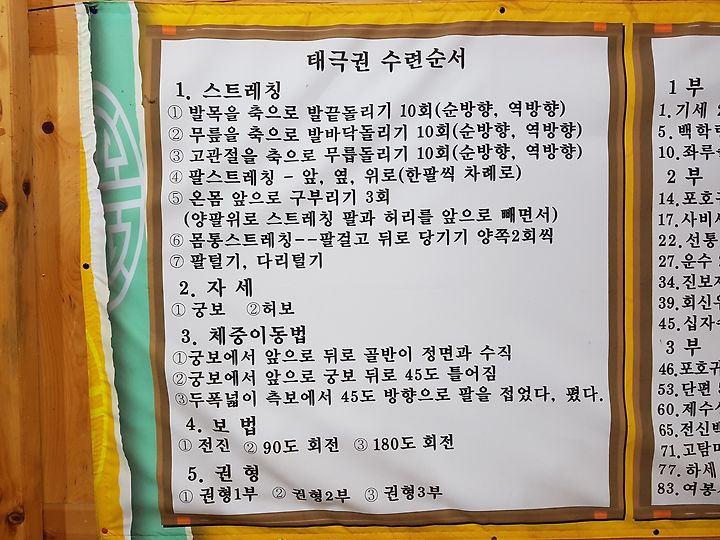 태극권 수련순서
1. 스트레칭
① 발목을 축으로 발끝돌리기 10회(순방향, 역방향)
② 무릎을 축으로 발바닥돌리기 10회(순방향, 역방향)
③ 고관절을 축으로 무릅돌리기 10회(순방향, 역방향)
④ 팔스트레칭 - 앞, 옆, 위로(한팔씩 차례로)
⑤ 온몸 앞으로 구부리기 3회
(양팔위로 스트레칭 팔과 허리를 앞으로 빼면서)
⑥ 몸통스트레칭--팔걸고 뒤로 당기기 양쪽2회씩
⑦ 팔털기, 다리털기
2. 자 세
① 궁보 ②허보
3. 체중이동법
①궁보에서 앞으로 뒤로 골반이 정면과 수직
②궁보에서 앞으로 궁보 뒤로 45도 틀어짐
③두폭넓이 측보에서 45도 방향으로 팔을 접었다, 폈다.
4. 보 법
① 전진 ② 90도 회전 ③ 180도 회전
5. 권 형
① 권형1부 ② 권형2부 ③ 권형3부
1 부
1.기세
5.백학
10.좌루
2 부
14.포호귀
17.사비세
22.선통
27.운수
34.진보
39.회신
45.십자
3 부
46.포호귀
53.단편
60.제수
65.전신백
71.고탐마
77.하세
83.여봉